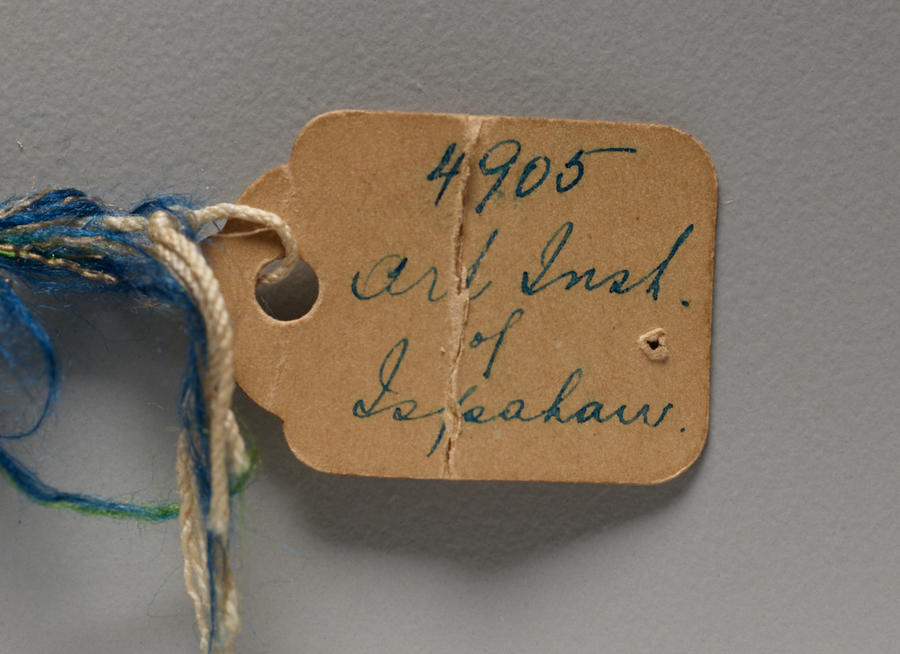 4905
Art Inst.
of
Ispahan.